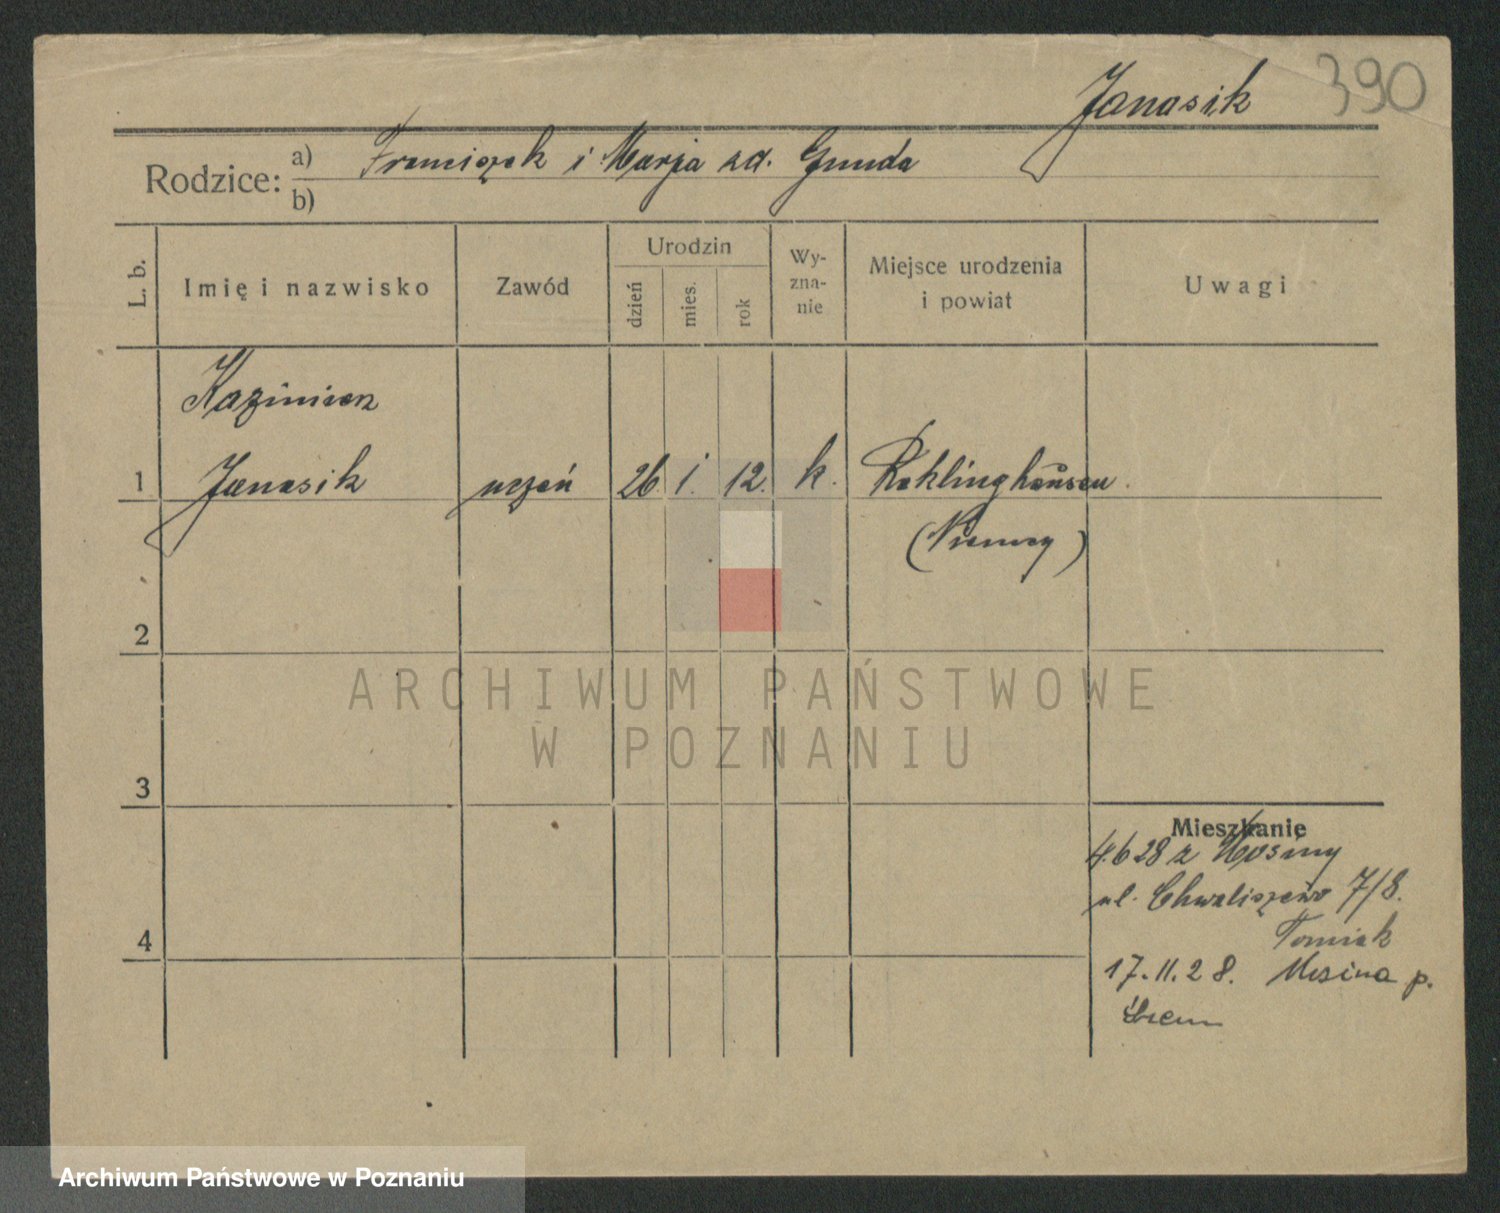 390
Janasik
Rodzice: a) Franciszek i Marja zd. Gmuda
b)
L. b.
Imię i nazwisko
Zawód
Urodzin
dzień
mies.
rok
Wy-
zna-
nie
Miejsce urodzenia
i powiat
Uwagi
Kazimierz
1 Janasik uczeń 26 i. 12. k. Reklinghausen.
(Niemcy)
2
3
4
Mieszkanie
4.6 28 z Mosiny
ul. Chwaliszewo 7/8.
Tomiak
17.11.28. Mosina p.
Śrem
ARCHIWUM PAŃSTWOWE
W POZNANIU
Archiwum Państwowe w Poznaniu